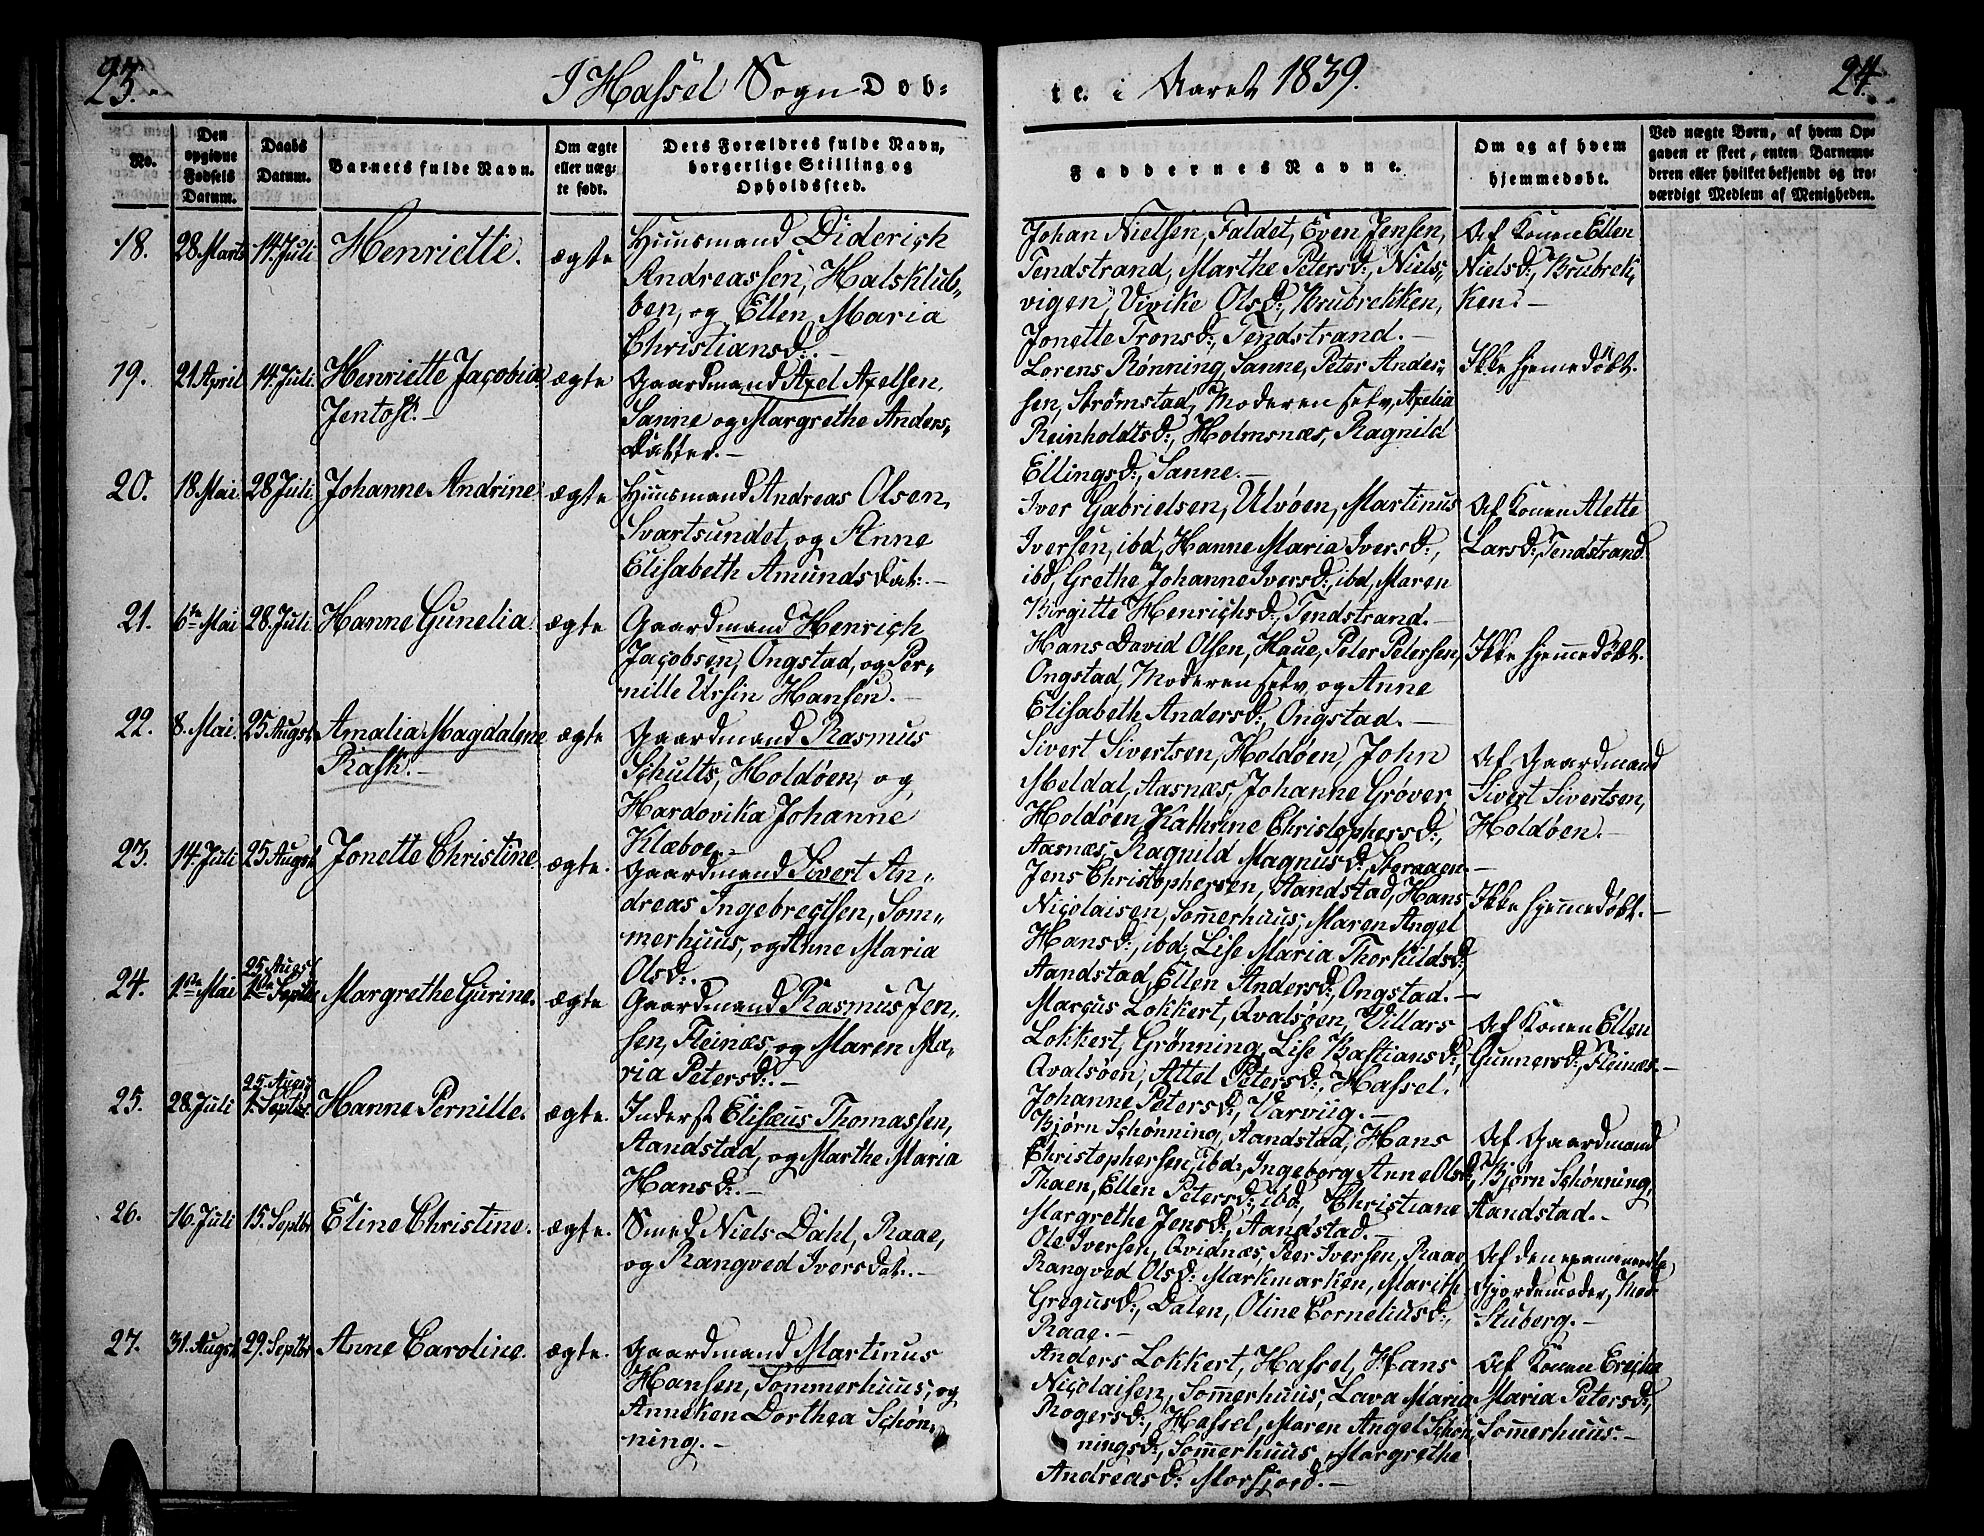 23.
I Hassel Sogn Døb-
te i Aaret 1839.
24.
No.
Den
opgivne
Fødsels
Datum.
Daabs
Datum.
Barnets fulde Navn.
Om ægte
eller næg-
te født.
Dets Forældres fulde Navn,
borgerlige Stilling og
Opholdssted.
Faddernes Navne.
Om og af hvem
hjemmedøbt.
Ved nægte Børn, af hvem Op-
gaven er skeet, enten Barnemo-
deren eller hvilket bekjendt og tro-
værdigt Medlem af Menigheden.
18.
28. Marts
14. Juli
Henriette.
ægte
Huusmand Diderich
Andreassen, Halsklub-
ben, og Ellen Maria
Christiansd:.–
Johan Nielsen, Faldet, Even Jensen,
Tendstrand, Marthe Petersd:, Niels-
vigen, Vivike Olsd:, Brubrekken,
Jonette Tronsd:, Tendstrand.–
Af Konen Ellen
Nielsd:, Brubrek-
ken.–
19.
21. April
14. Juli
Henriette Jacobia
Jentoft.–
ægte
Gaardmand Axel Axelsen,
Sanne og Margrethe Anders-
datter.–
Lorens Rønning, Sanne, Peter Ander-
sen, Strømstad, Moderen selv, Axelia
Reinholdtsd:, Holmsnæs, Ragnild
Ellingsd:, Sanne.–
Ikke hjemmedøbt.
20.
18. Mai
28. Juli
Johanne Andrine
ægte
Huusmand Andreas Olsen,
Svartsundet, og Anne
Elisabeth Amundsdat:.–
Iver Gabrielsen, Ulvøen, Martinus
Iversen, ibd, Hanne Maria Iversd:,
ibd, Grethe Johanne Iversd:, ibd, Maren
Birgitte Henrichsd:, Tendstrand.–
Af Konen Alette
Larsd:, Tendstrand.
21.
6te Mai
28. Juli
Hanne Gunelia.
ægte
Gaardmand Henrich
Jacobsen, Ongstad, og Per-
nille Ursin Hansen.–
Hans David Olsen, Haue, Peter Petersen,
Ongstad, Moderen selv og Anne
Elisabeth Andersd:, Ongstad.–
Ikke hjemmedøbt.
22.
8. Mai.
25. August
Amalia Magdalene
Rask.–
ægte
Gaardmand Rasmus
Schults, Holdøen, og
Hardovika Johanne
Klæboe.–
Sivert Sivertsen, Holdøen, John
Meldal, Aasnæs, Johanne Grøver,
Holdøen, Kathrine Christophersd:,
Aasnæs, Ragnild Magnusd:,
Af Gaardmand
Sivert Sivertsen,
Holdøen.–
23.
14. Juli
25. August
Jonette Christine.
ægte.
Gaardmand Sivert An-
dreas Ingebregtsen, Som-
merhuus, og Anne Maria
Olsd:.
Jens Christophersen, Aandstad, Hans
Nicolaisen, Sommerhuus, Maren Angel
Hansd:, ibd, Lise Maria Thorkildsd:,
Aandstad, Ellen Andersd:, Ongstad.–
Ikke hjemmedøbt.–
24.
1ste Mai
25. August
1ste Septbr
Margrethe Gurine.
ægte
Gaardmand Rasmus Jen-
sen, Fleinæs, og Maren Ma-
ria Petersd:.–
Marcus Lokkert, Qvalsøen, Villars
Lokkert, Grønning, Lise Bastiansd:,
Qvalsøen, Attel Petersd:, Hassel.
Johanne Petersd:, Varviig.–
Af Konen Ellen
Gunnersd:, Fleinæs.–
25.
28. Juli
25. August
1. Septbr
Hanne Pernille.
ægte.
Inderst Elisæus Thomassen,
Aandstad, og Marthe Maria
Hansd:.–
Bjørn Schønning, Aandstad, Hans
Christophersen, ibd:, Ingeborg Anne Olsd:,
Thaen, Ellen Petersd:, ibd, Christiane
Margrethe Jensd:, Aandstad.
Af Gaardmand
Bjørn Schønning,
Aandstad.–
26.
16. Juli
15. Septbr
Eline Christine.
ægte.
Smed Niels Dahl, Raae,
og Rangved Iversdat:.–
Ole Iversen, Qvidnæs, Peer Iversen, Raae,
Rangved Olsd: Markmarken, Marith
Gregusd:, Dalen, Oline Corneliusd:,
Raae.–
Af den examinerede
Gjordemoder, Mad:
Stuberg.–
27.
31. August
29. Septbr
Anne Caroline.
ægte.
Gaardmand Martinus
Hansen, Sommerhuus, og
Anneken Dorthea Schøn-
ning.–
Anders Lokkert, Hassel, Hans
Nicolaisen, Sommerhuus, Lava Maria
Rogersd:, Hassel, Maren Angel Schøn-
ningsd:, Sommerhuus, Margrethe
Andreasd: Morfjord.–
Af Konen
Maria Petersd:,
Sommerhuus.–